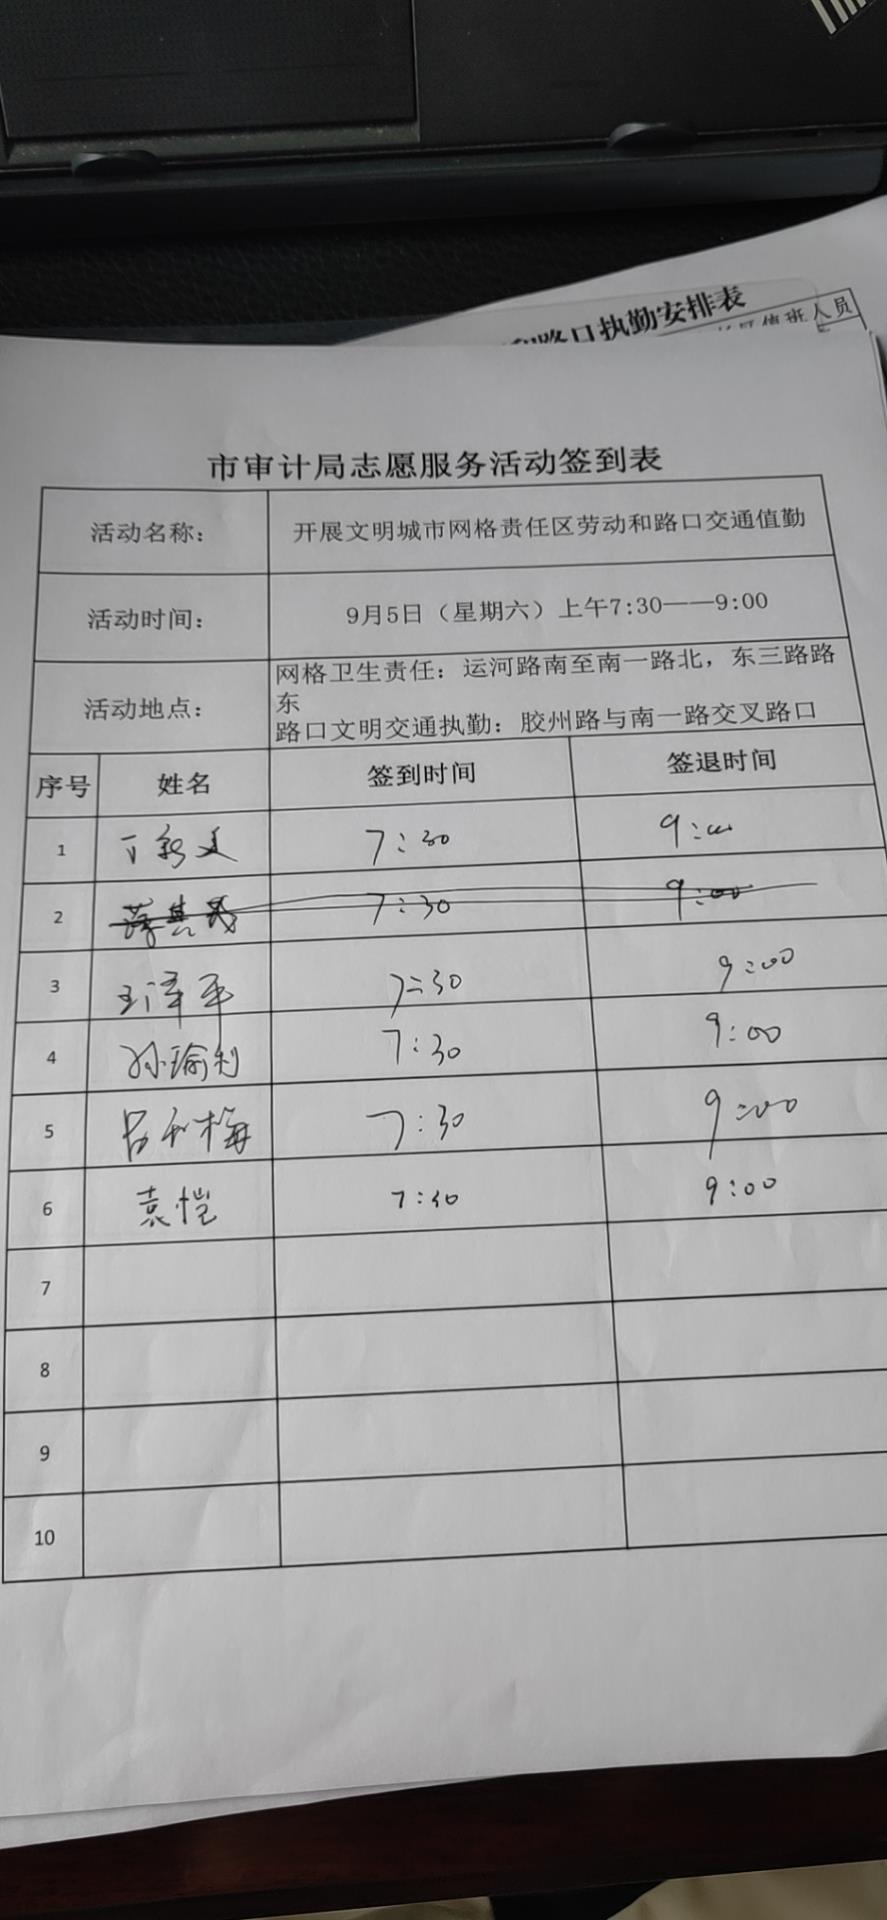 路口执勤安排表
值班人员
市审计局志愿服务活动签到表
活动名称： 开展文明城市网格责任区劳动和路口交通值勤
活动时间： 9月5日（星期六）上午7:30——9:00
活动地点： 网格卫生责任：运河路南至南一路北，东三路路
东
路口文明交通执勤：胶州路与南一路交叉路口
序号 姓名 签到时间 签退时间
1 丁新美 7:30 9:00
2 7:30 9:00
3 王泽平 7:30 9:00
4 孙瑜利 7:30 9:00
5 吕和梅 7:30 9:00
6 袁恺 7:30 9:00
7
8
9
10